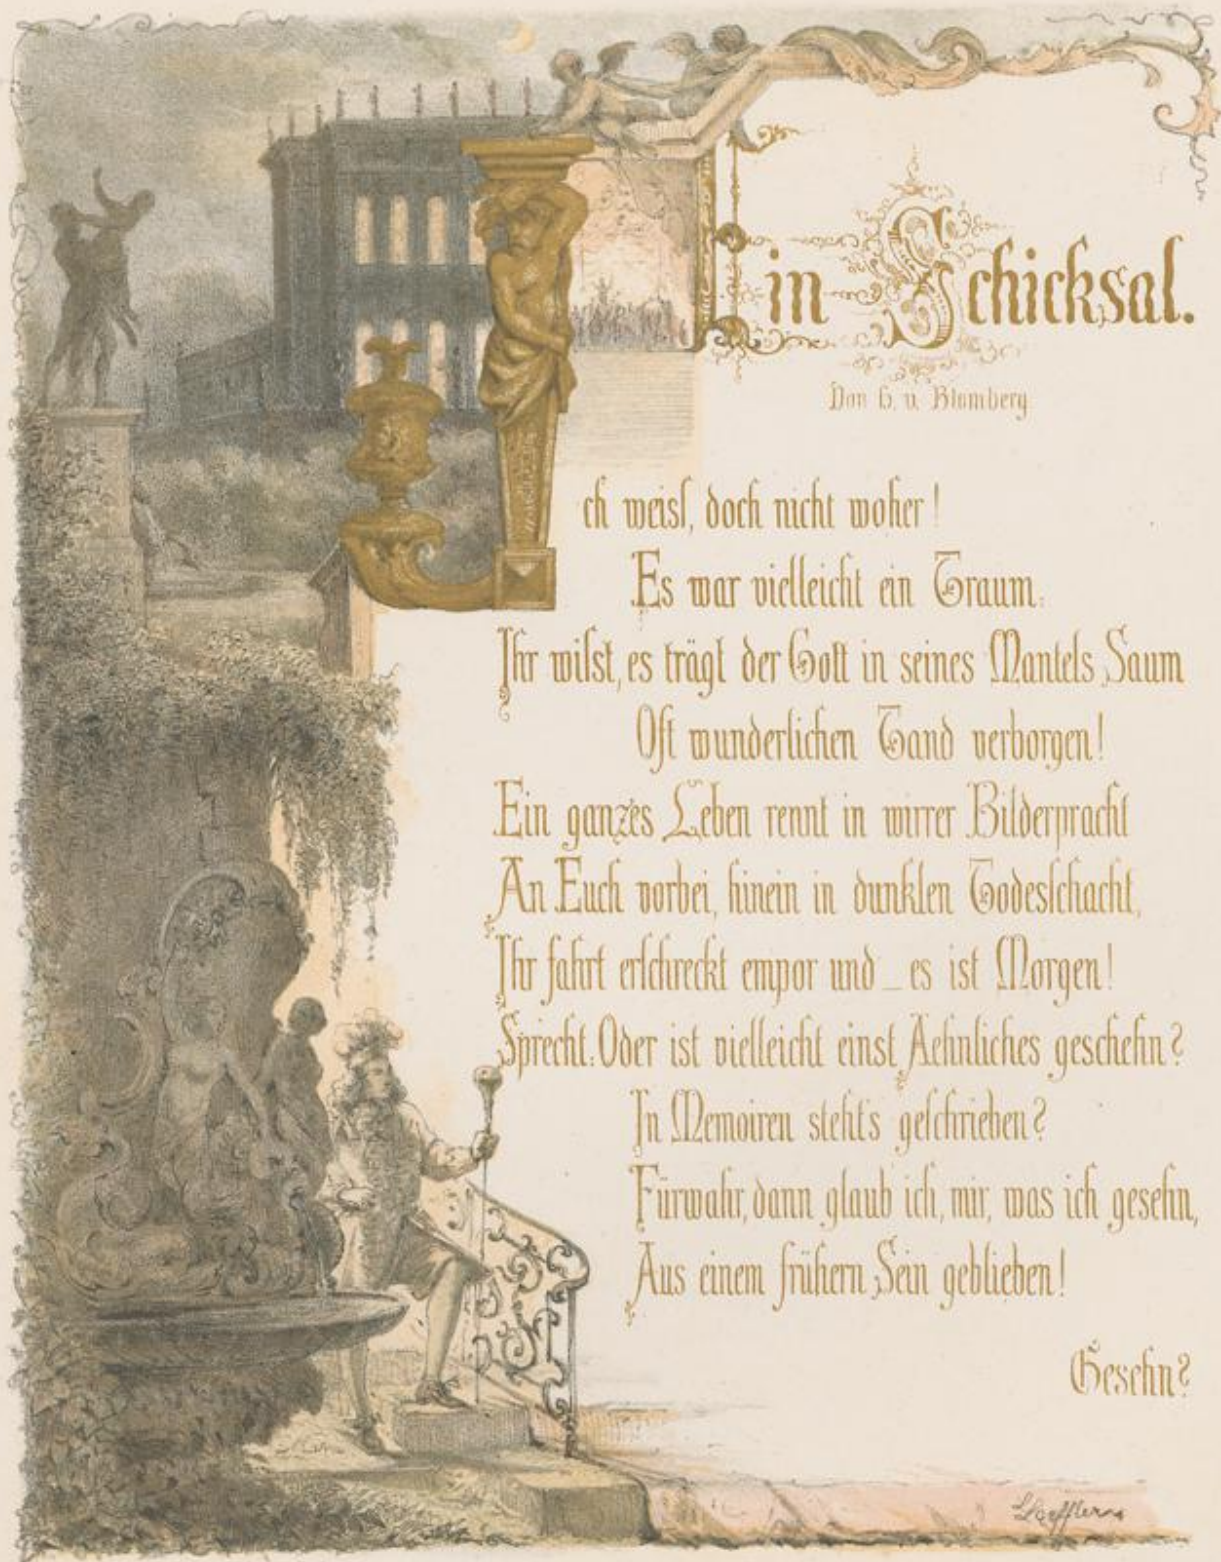 Ein Schicksal.
Von H. v. Blomberg
Ich weiss, doch nicht woher!
Es war vielleicht ein Traum:
Ihr wisst, es trägt der Gott in seines Mantels Saum
Oft wunderlichen Tand verborgen!
Ein ganzes Leben rennt in wirrer Bilderpracht
An Euch vorbei, hinein in dunklen Todesschacht,
Ihr fahrt erschreckt empor und _ es ist Morgen!
Sprecht: Oder ist vielleicht einst Aehnliches geschehn?
In Memoiren steht's geschrieben?
Fürwahr, dann glaub ich, mir, was ich gesehn,
Aus einem frühern Sein geblieben!
Gesehn?
L. Loeffler